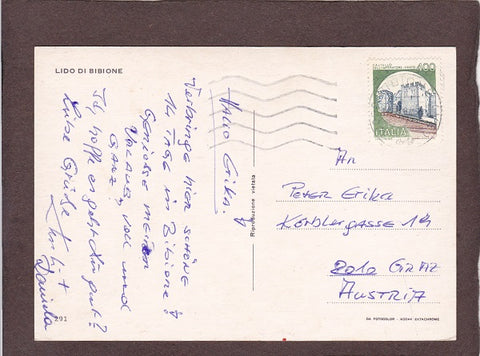 LIDO DI BIBIONE
Hallo Erika!
Verbringe hier schöne
14 Tage in Bibione!
Genieße meinen
Urlaub voll und
ganz!
Ich hoffe es geht Dir gut?
Liebe Grüße
+
Daniela
291
Riproduzione vietata
400
ITALIA
An
Peter Erika
8010 Graz
Austria